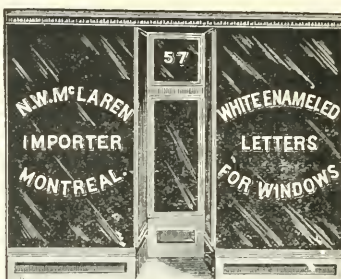 N.W. McLAREN
IMPORTER
MONTREAL.
57
WHITE ENAMELED
LETTERS
FOR WINDOWS